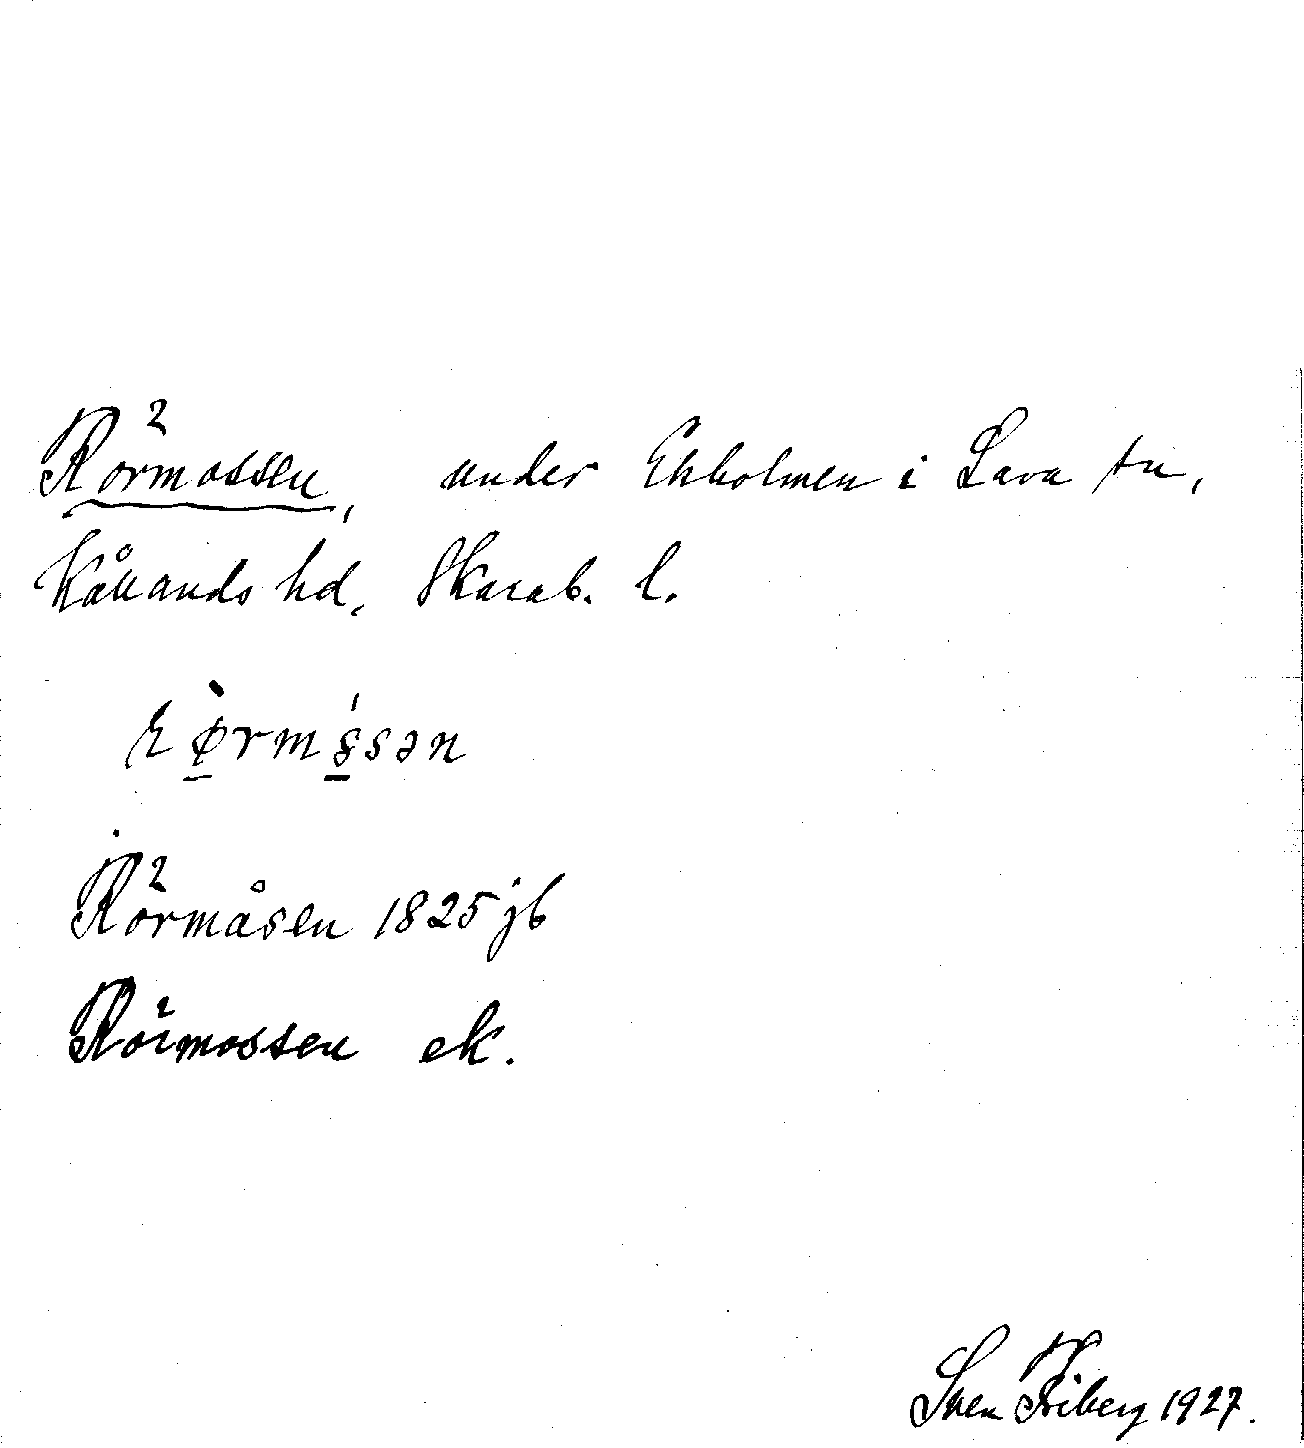 Rörmossen, under Ekholmen i Lava sn,
Kållands hd, Skarab. l.
Rörmåsen 1825 jb
Rörmossen ek.
Sven Friberg 1927.